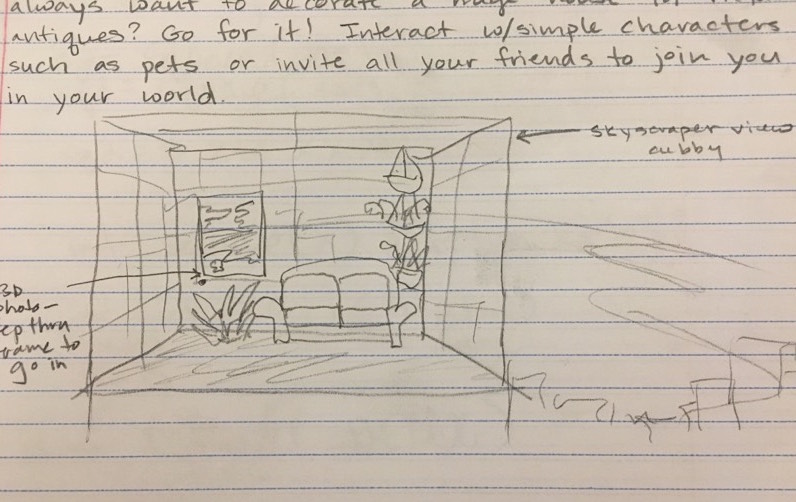 always want to decorate a huge house
antiques? Go for it! Interact w/simple characters
such as pets or invite all your friends to join you
in your world.
skyscraper view
cubby
3D
photo-
step thru
frame to
go in